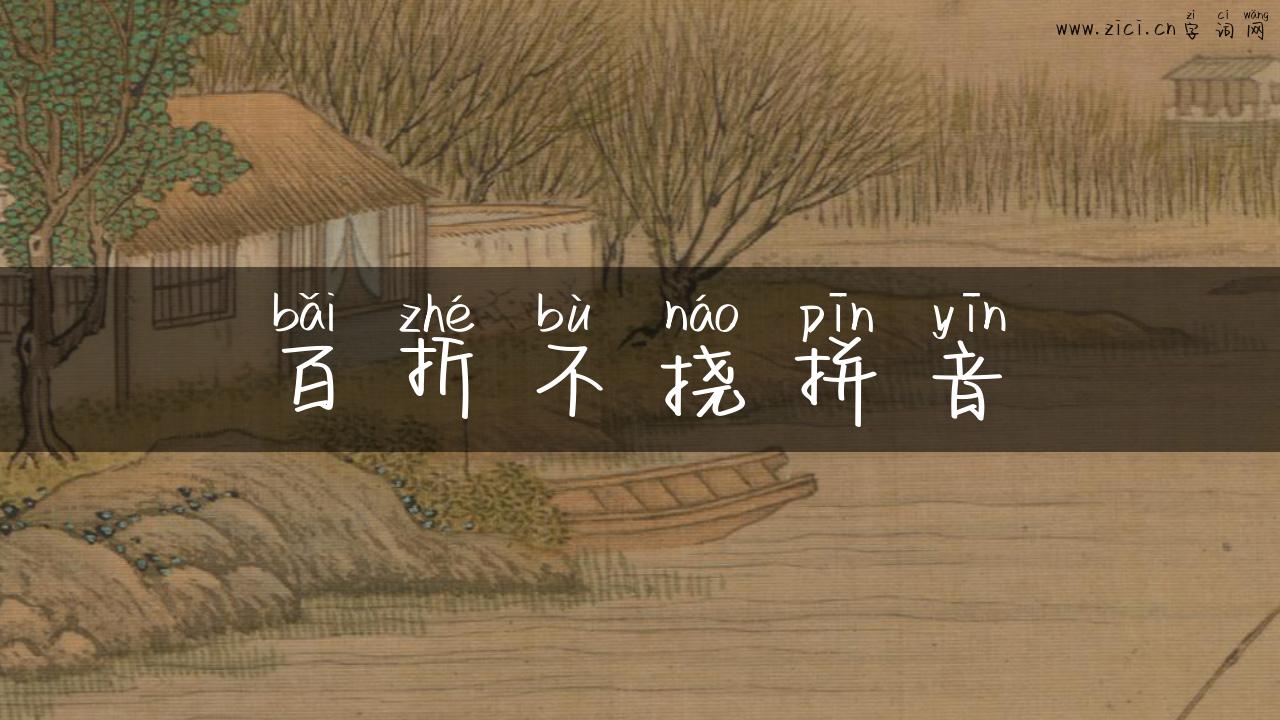 zì cí wǎng
www.zici.cn 字词网
bǎi zhé bù náo pīn yīn
百折不挠拼音